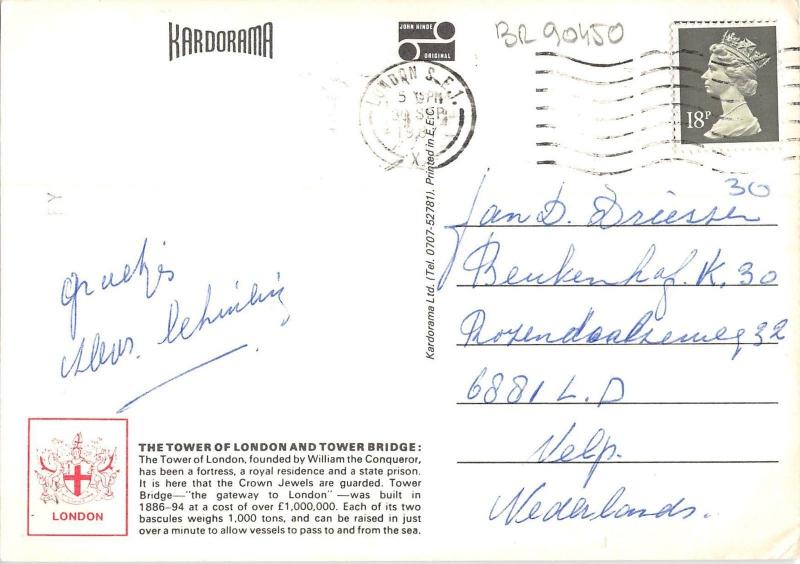 KARDORAMA
JOHN HINDE
ORIGINAL
BR 90450
LONDON S.E.1.
5 PM
30 SEP
19
X
18P
30
Jan D. Driessen
Beukenhof. K. 30
Rozendaalseweg 32
6881 L.D
Velp.
Nederlands.
groetjes
Kardorama Ltd. (Tel. 0707-52781). Printed in E.E.C.
LONDON
THE TOWER OF LONDON AND TOWER BRIDGE:
The Tower of London, founded by William the Conqueror,
has been a fortress, a royal residence and a state prison.
It is here that the Crown Jewels are guarded. Tower
Bridge—"the gateway to London"—was built in
1886-94 at a cost of over £1,000,000. Each of its two
bascules weighs 1,000 tons, and can be raised in just
over a minute to allow vessels to pass to and from the sea.